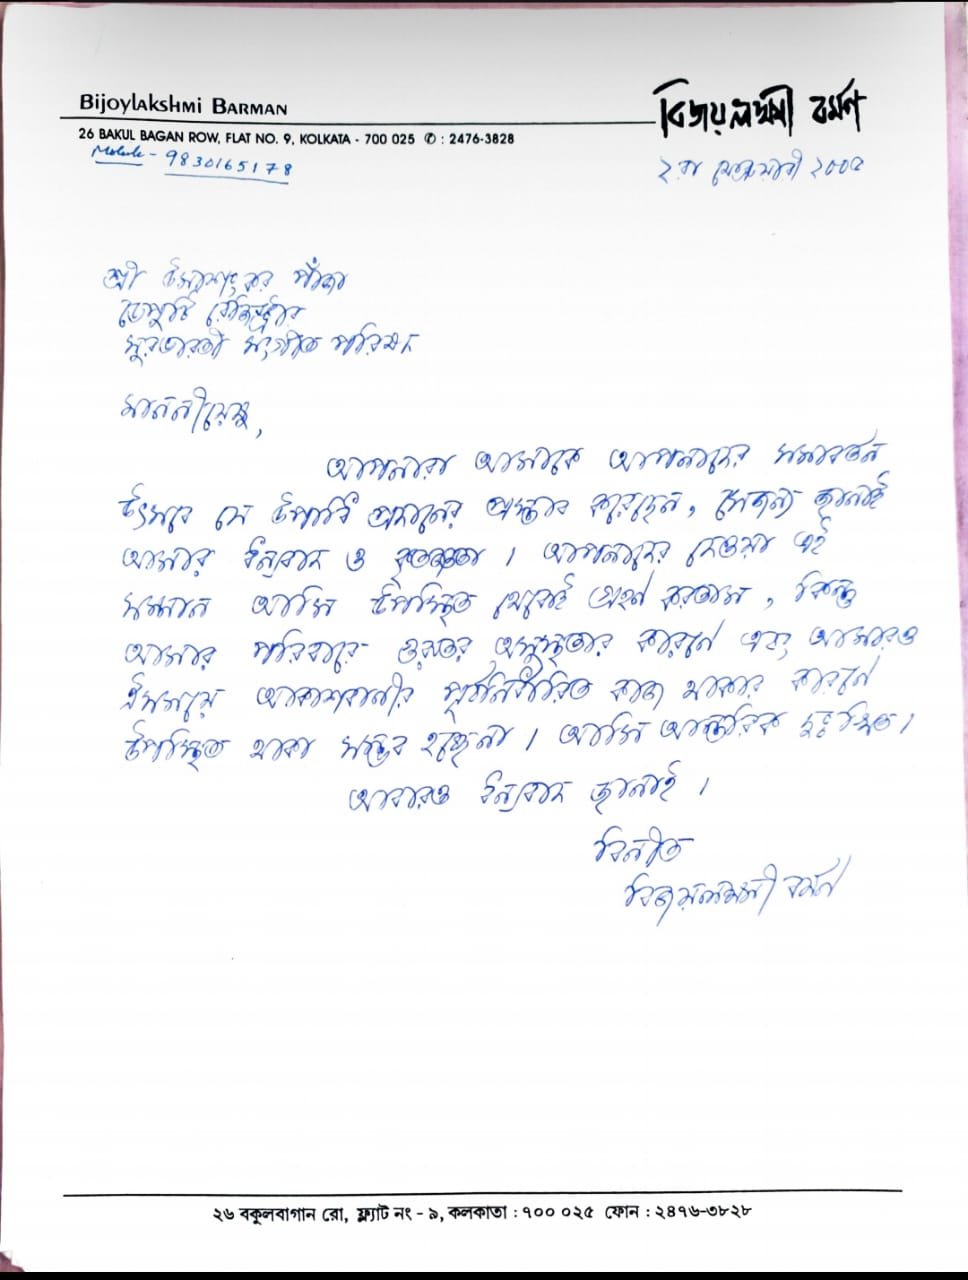 Bijoylakshmi BARMAN
বিজয়লক্ষ্মী বর্মণ
26 BAKUL BAGAN ROW, FLAT NO. 9, KOLKATA - 700 025 ✆ : 2476-3828
Mobile - 9830165178
২রা ফেব্রুয়ারী ২০০৫
শ্রী উমাশংকর পাঁজা
ডেপুটি রেজিস্ট্রার
সুরভারতী সংগীত পরিষদ
মাননীয়েষু,
আপনারা আমাকে আপনাদের সমাবর্তন
উৎসবে যে উপাধি প্রদানের প্রস্তাব করেছেন, সেজন্য জানাই
আমার ধন্যবাদ ও কৃতজ্ঞতা। আপনাদের দেওয়া এই
সম্মান আমি উপস্থিত থেকেই গ্রহণ করতাম, কিন্তু
আমার পরিবারে গুরুতর অসুস্থতার কারণে এবং আমারও
ঐসময়ে আকাশবাণীর পূর্বনির্ধারিত কাজ থাকার কারণে
উপস্থিত থাকা সম্ভব হচ্ছেনা। আমি আন্তরিক দুঃখিত।
আবারও ধন্যবাদ জানাই।
বিনীত
বিজয়লক্ষ্মী বর্মণ
২৬ বকুলবাগান রো, ফ্ল্যাট নং - ৯, কলকাতা : ৭০০ ০২৫ ফোন : ২৪৭৬-৩৮২৮